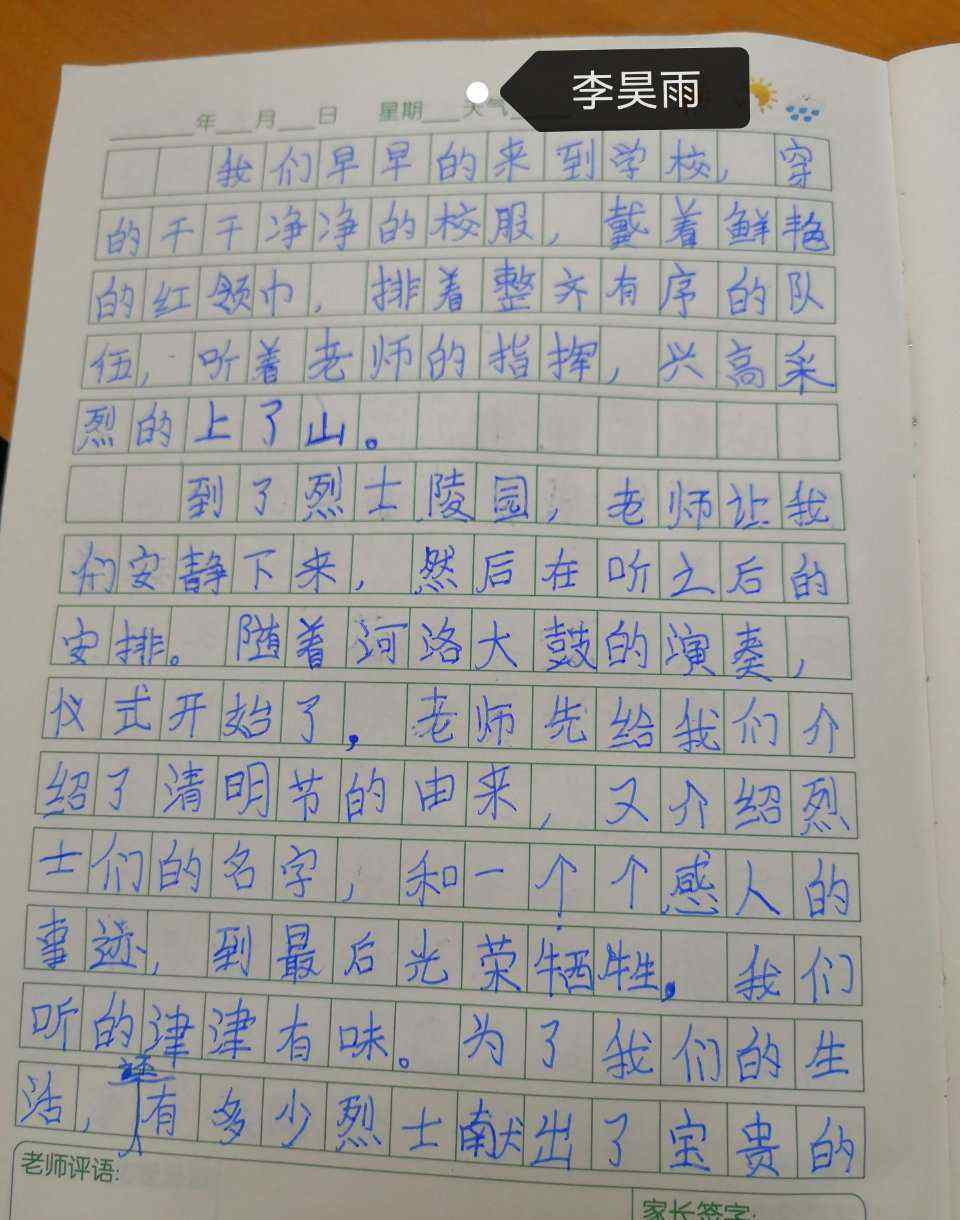 李昊雨
年 月 日 星期 天气
我们早早的来到学校，穿
的干干净净的校服，戴着鲜艳
的红领巾，排着整齐有序的队
伍，听着老师的指挥，兴高采
烈的上了山。
到了烈士陵园，老师让我
们安静下来，然后在听之后的
安排。随着河洛大鼓的演奏，
仪式开始了，老师先给我们介
绍了清明节的由来，又介绍烈
士们的名字，和一个个感人的
事迹，到最后光荣牺牲。我们
听的津津有味。为了我们的生
活，有多少烈士献出了宝贵的
老师评语:
家长签字: